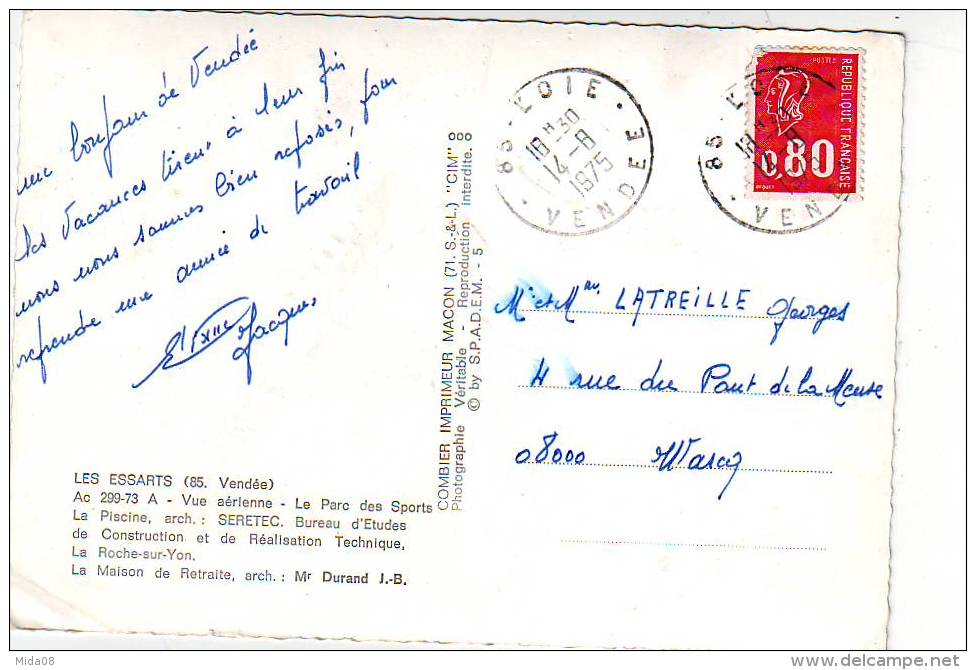 un bonjour de Vendée
les vacances tirent à leur fin
nous nous sommes bien reposés, pour
reprendre une année de travail
Jacques
LES ESSARTS (85. Vendée)
Ac 299-73 A - Vue aérienne - Le Parc des Sports
La Piscine, arch. : SERETEC. Bureau d'Etudes
de Construction et de Réalisation Technique,
La Roche-sur-Yon.
La Maison de Retraite, arch. : Mr Durand J.-B.
COMBIER IMPRIMEUR MACON (71. S.-&-L.) "CIM" ooo
Photographie Véritable - Reproduction interdite.
© by S.P.A.D.E.M. - 5
85 - L'OIE
18 H 30
14-8
1975
VENDEE
85
VENDE
POSTES
REPUBLIQUE FRANÇAISE
0,80
Mr et Mme LATREILLE Georges
4 rue du Pont de la Meuse
08000 Warcq
Mida08
delcampe.net